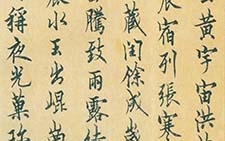 黃宇宙洪
宿列張寒
藏閏餘成歲
騰致雨露結
水玉出崐崗
稱夜光菓珍